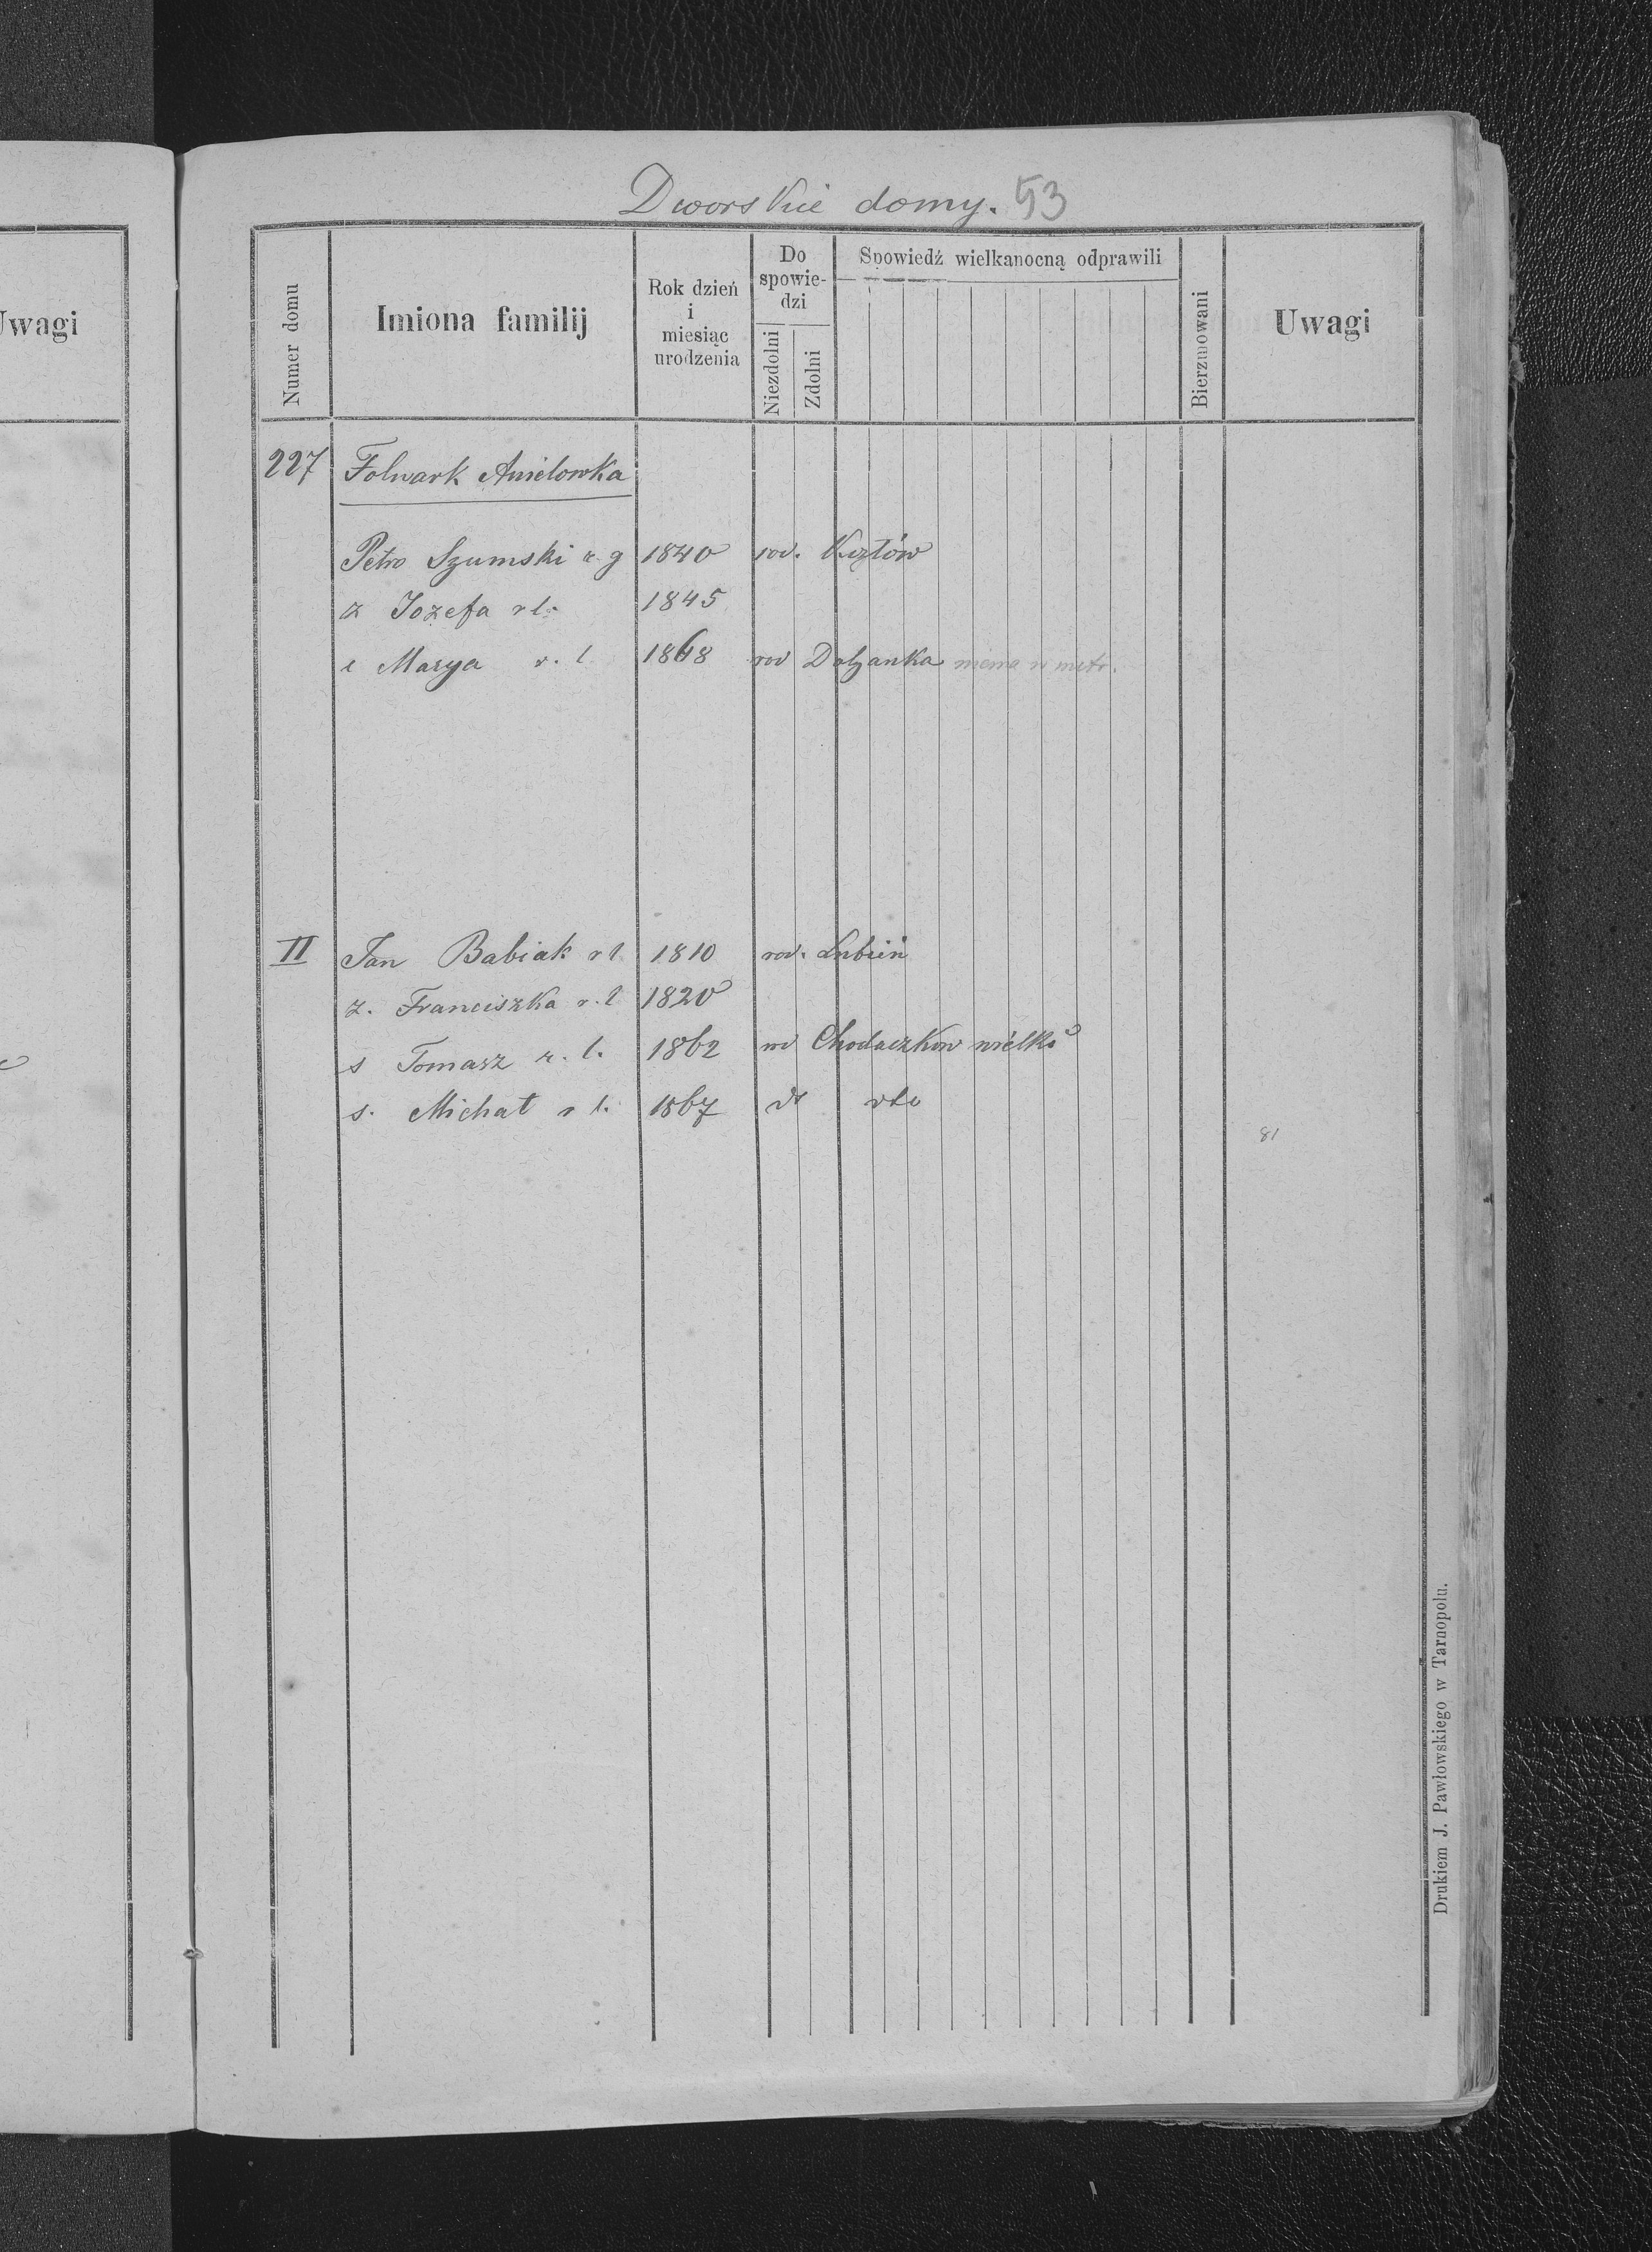 Dworskie domy. 53
Uwagi
Numer domu
Imiona familij
Rok dzień
i
miesiąc
urodzenia
Do
spowie-
dzi
Niezdolni
Zdolni
Spowiedź wielkanocną odprawili
Bierzmowani
Uwagi
227 Folwark Anielowka
Petro Szumski r. g 1840 rod. Kozłów
ż Jozefa r l. 1845
c Marya r. l. 1868 rod Dołżanka niema w metr.
II Jan Babiak r l 1810 rod. Lubień
ż. Franciszka r. l 1820
s Tomasz r. l. 1862 rod Chodaczkow wielki
s. Michał r l. 1867 dto
81
Drukiem J. Pawłowskiego w Tarnopolu.